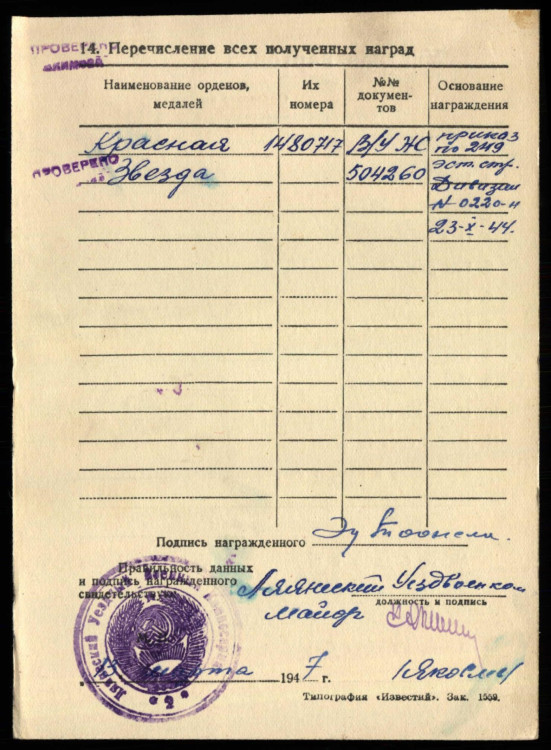 ПРОВЕРЕНО
14. Перечисление всех полученных наград
Наименование орденов, медалей
Их номера
№№ документов
Основание награждения
Красная 1480717 В/Ч ЖС приказ
ПРОВЕРЕНО
Звезда 504260 по 249
эст. стр.
Дивизии
N-0220-н
23-X-44.
Подпись награжденного
Правильность данных
и подпись награжденного
свидетельствую:
Уездвоенком
должность и подпись
майор
марта 1947 г.
Типография «Известий». Зак. 1559.